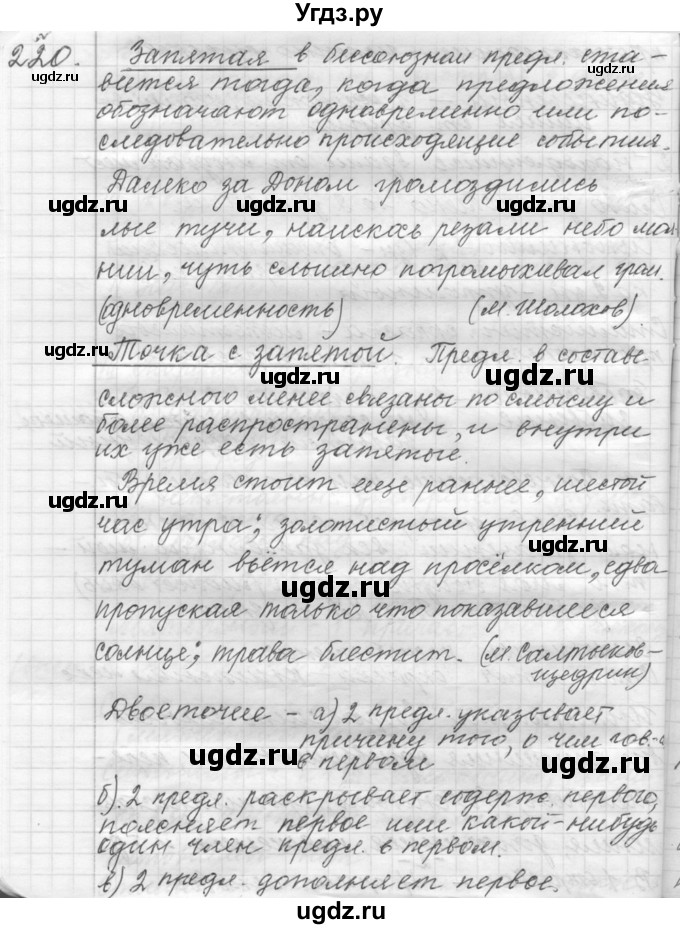 Угдз.ру
220. Запятая в бессоюзнам предл. ста-
вится тогда, когда предложения
обозначают одновременно или по-
следовательно происходящие события.
Далеко за Доном громоздились
ugdz.ru ugdz.ru ugdz.ru
лые тучи, наискось резали небо мол-
нии, чуть слышно погромыхивал гром.
(одновременность) (М. Шолохов)
ugdz.ru
Точка с запятой. Предл. в составе
ugdz.ru
сложного менее связаны по смыслу и
более распространены, и внутри
их уже есть запятые.
Время стоит еще раннее, шестой
ugdz.ru
час утра; золотистый утренний
туман вьётся над просёлком, едва
ugdz.ru
пропуская только что показавшееся
солнце; трава блестит. (М. Салтыков-
Щедрин)
ugdz.ru
Двоеточие - а) 2 предл. указывает
причину того, о чем гов-
в первом
ugdz.ru ugdz.ru
б). 2 предл. раскрывает содерж. первого,
поясняет первое или какой-нибудь
один член предл. в первом.
в) 2 предл. дополняет первое.
ugdz.ru
ugdz.ru